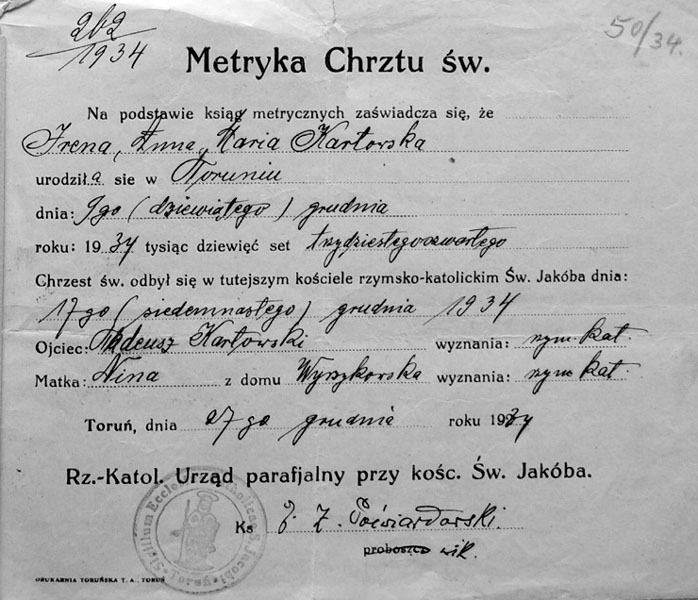 262/1934
50/34.
Metryka Chrztu św.
Na podstawie ksiąg metrycznych zaświadcza się, że
Irena, Anna, Maria Karłowska
urodziła sie w Toruniu
dnia: 9go (dziewiątego) grudnia
roku: 1934 tysiąc dziewięć set trzydziestegoczwartego
Chrzest św. odbył się w tutejszym kościele rzymsko-katolickim Św. Jakóba dnia:
17go (siedemnastego) grudnia 1934
Ojciec: Tadeusz Karłowski wyznania: rzym. kat.
Matka: Nina z domu Wyszkowska wyznania: rzym. kat.
Toruń, dnia 27go grudnia roku 1934
Rz.-Katol. Urząd parafjalny przy kośc. Św. Jakóba.
Ks
proboszcz wik.
DRUKARNIA TORUŃSKA T. A., TORUŃ